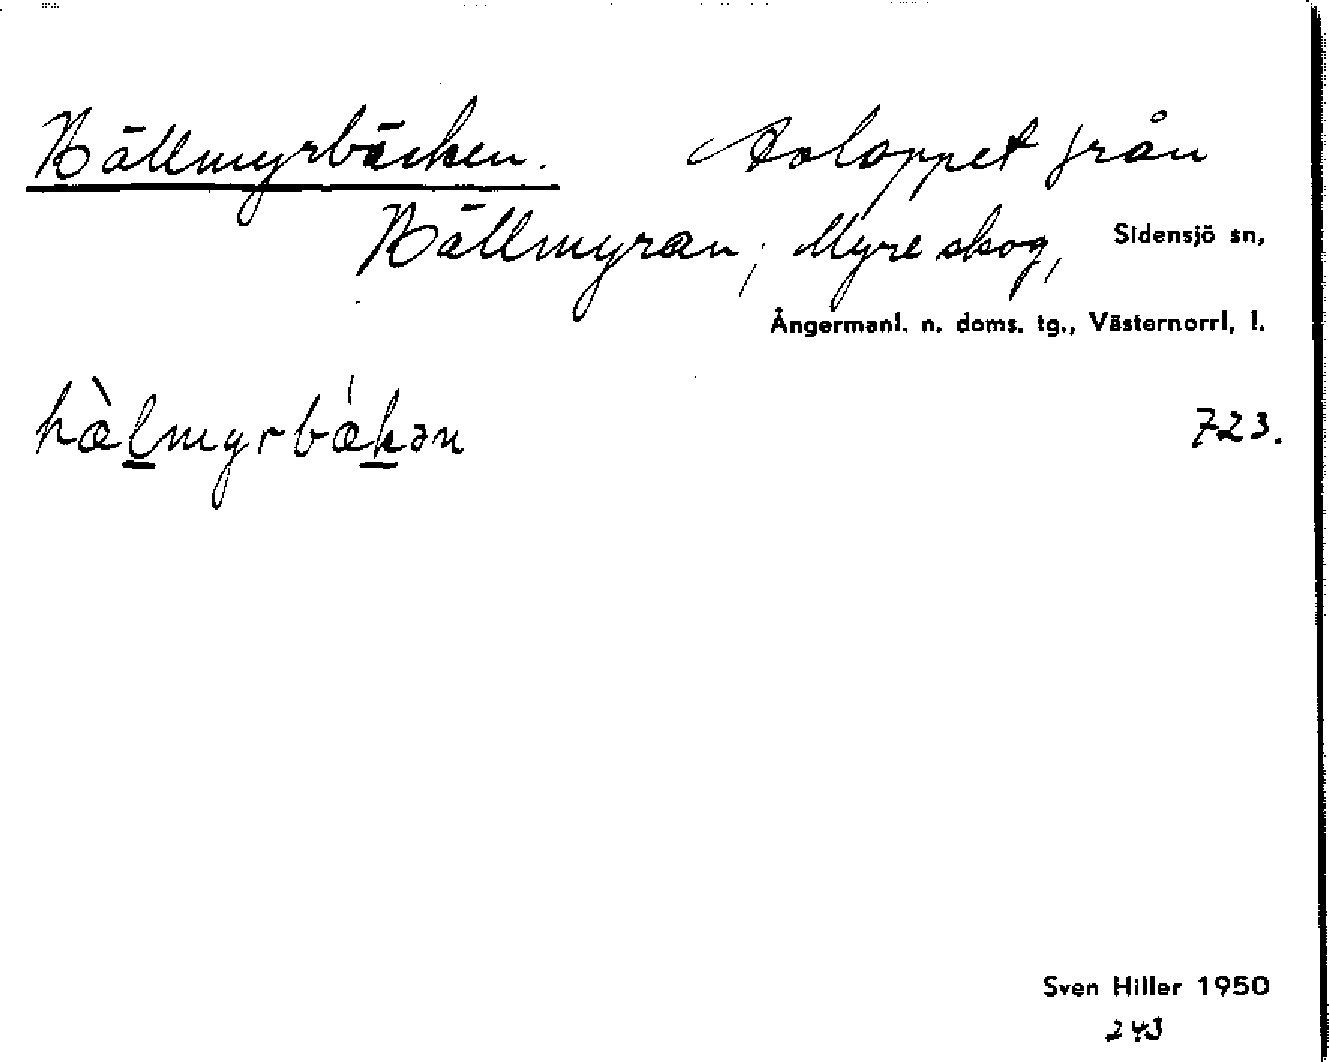 Hällmyrbäcken. Avloppet från
Hällmyran; Myre skog, Sidensjö sn,
Ångermanl. n. doms. tg., Västernorrl. l.
hæ̀l̲myrbǽk̲ən 723.
Sven Hiller 1950
243